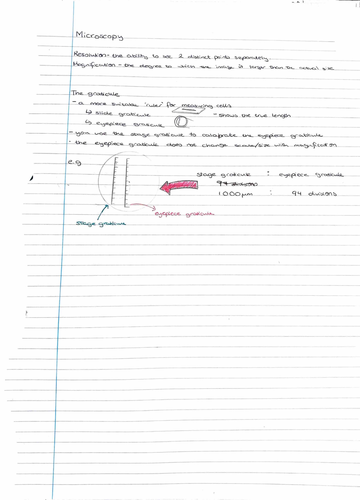 Microscopy
Resolution - the ability to see 2 distinct points separately
Magnification - the degree to which the image is larger than the actual size
The graticule
- a more suitable 'ruler' for measuring cells
↳ slide graticule - shows the true length
↳ eyepiece graticule
- you use the stage graticule to calibrate the eyepiece graticule
- the eyepiece graticule does not change scale/size with magnification
e.g
stage graticule : eyepiece graticule
94 divisions
1000μm : 94 divisions
eyepiece graticule
stage graticule